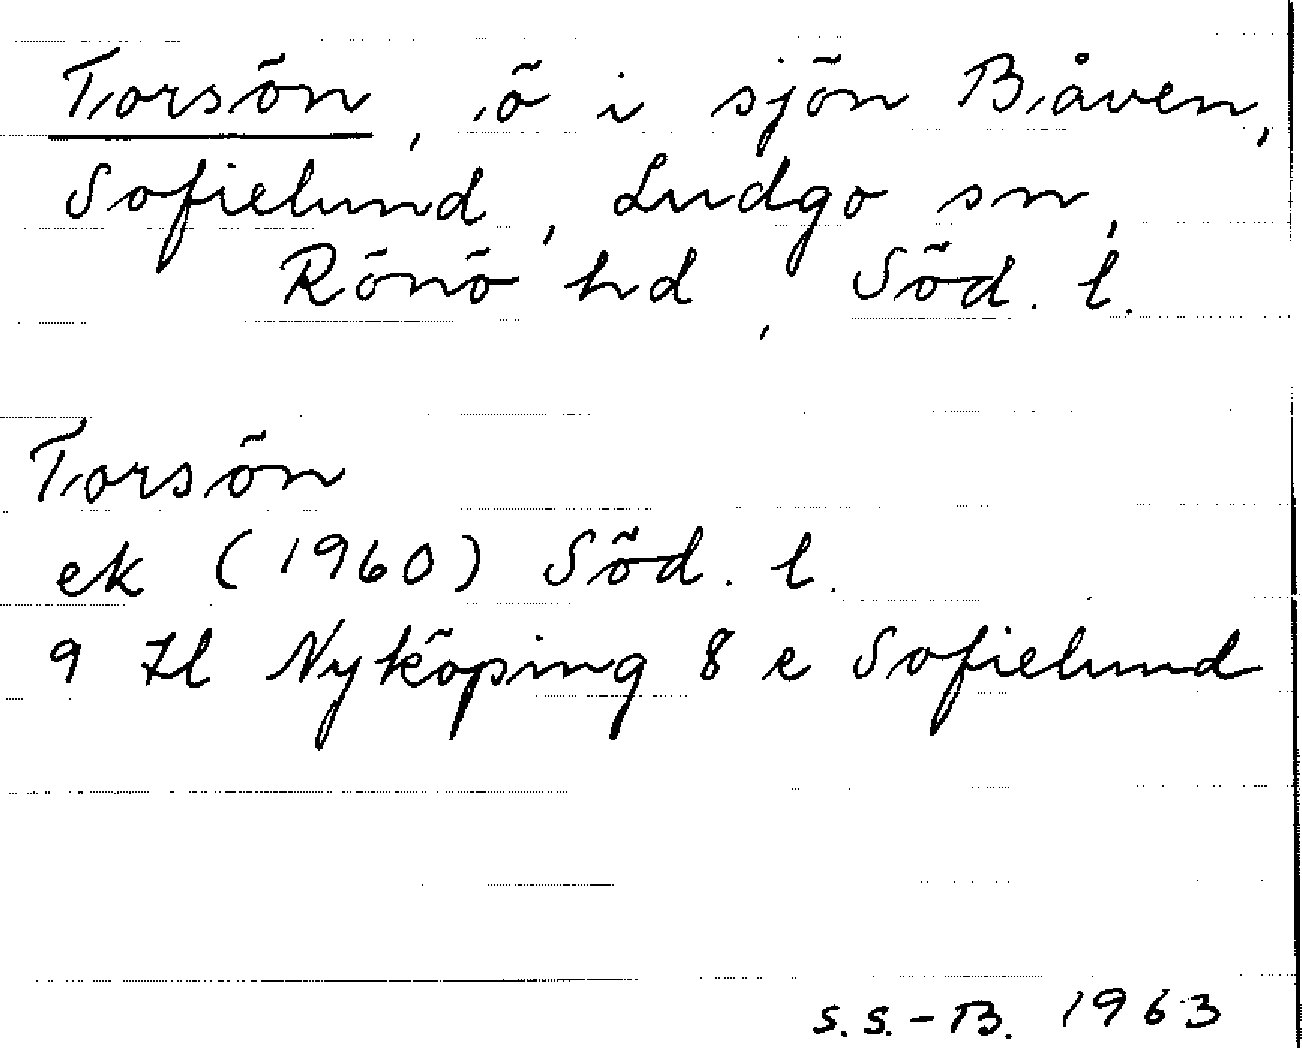 Torsön, ö i sjön Båven,
Sofielund, Ludgo sn,
Rönö hd, Söd. l.
Torsön
ek (1960) Söd. l.
9 Il Nyköping 8 e Sofielund
S.S.-B. 1963